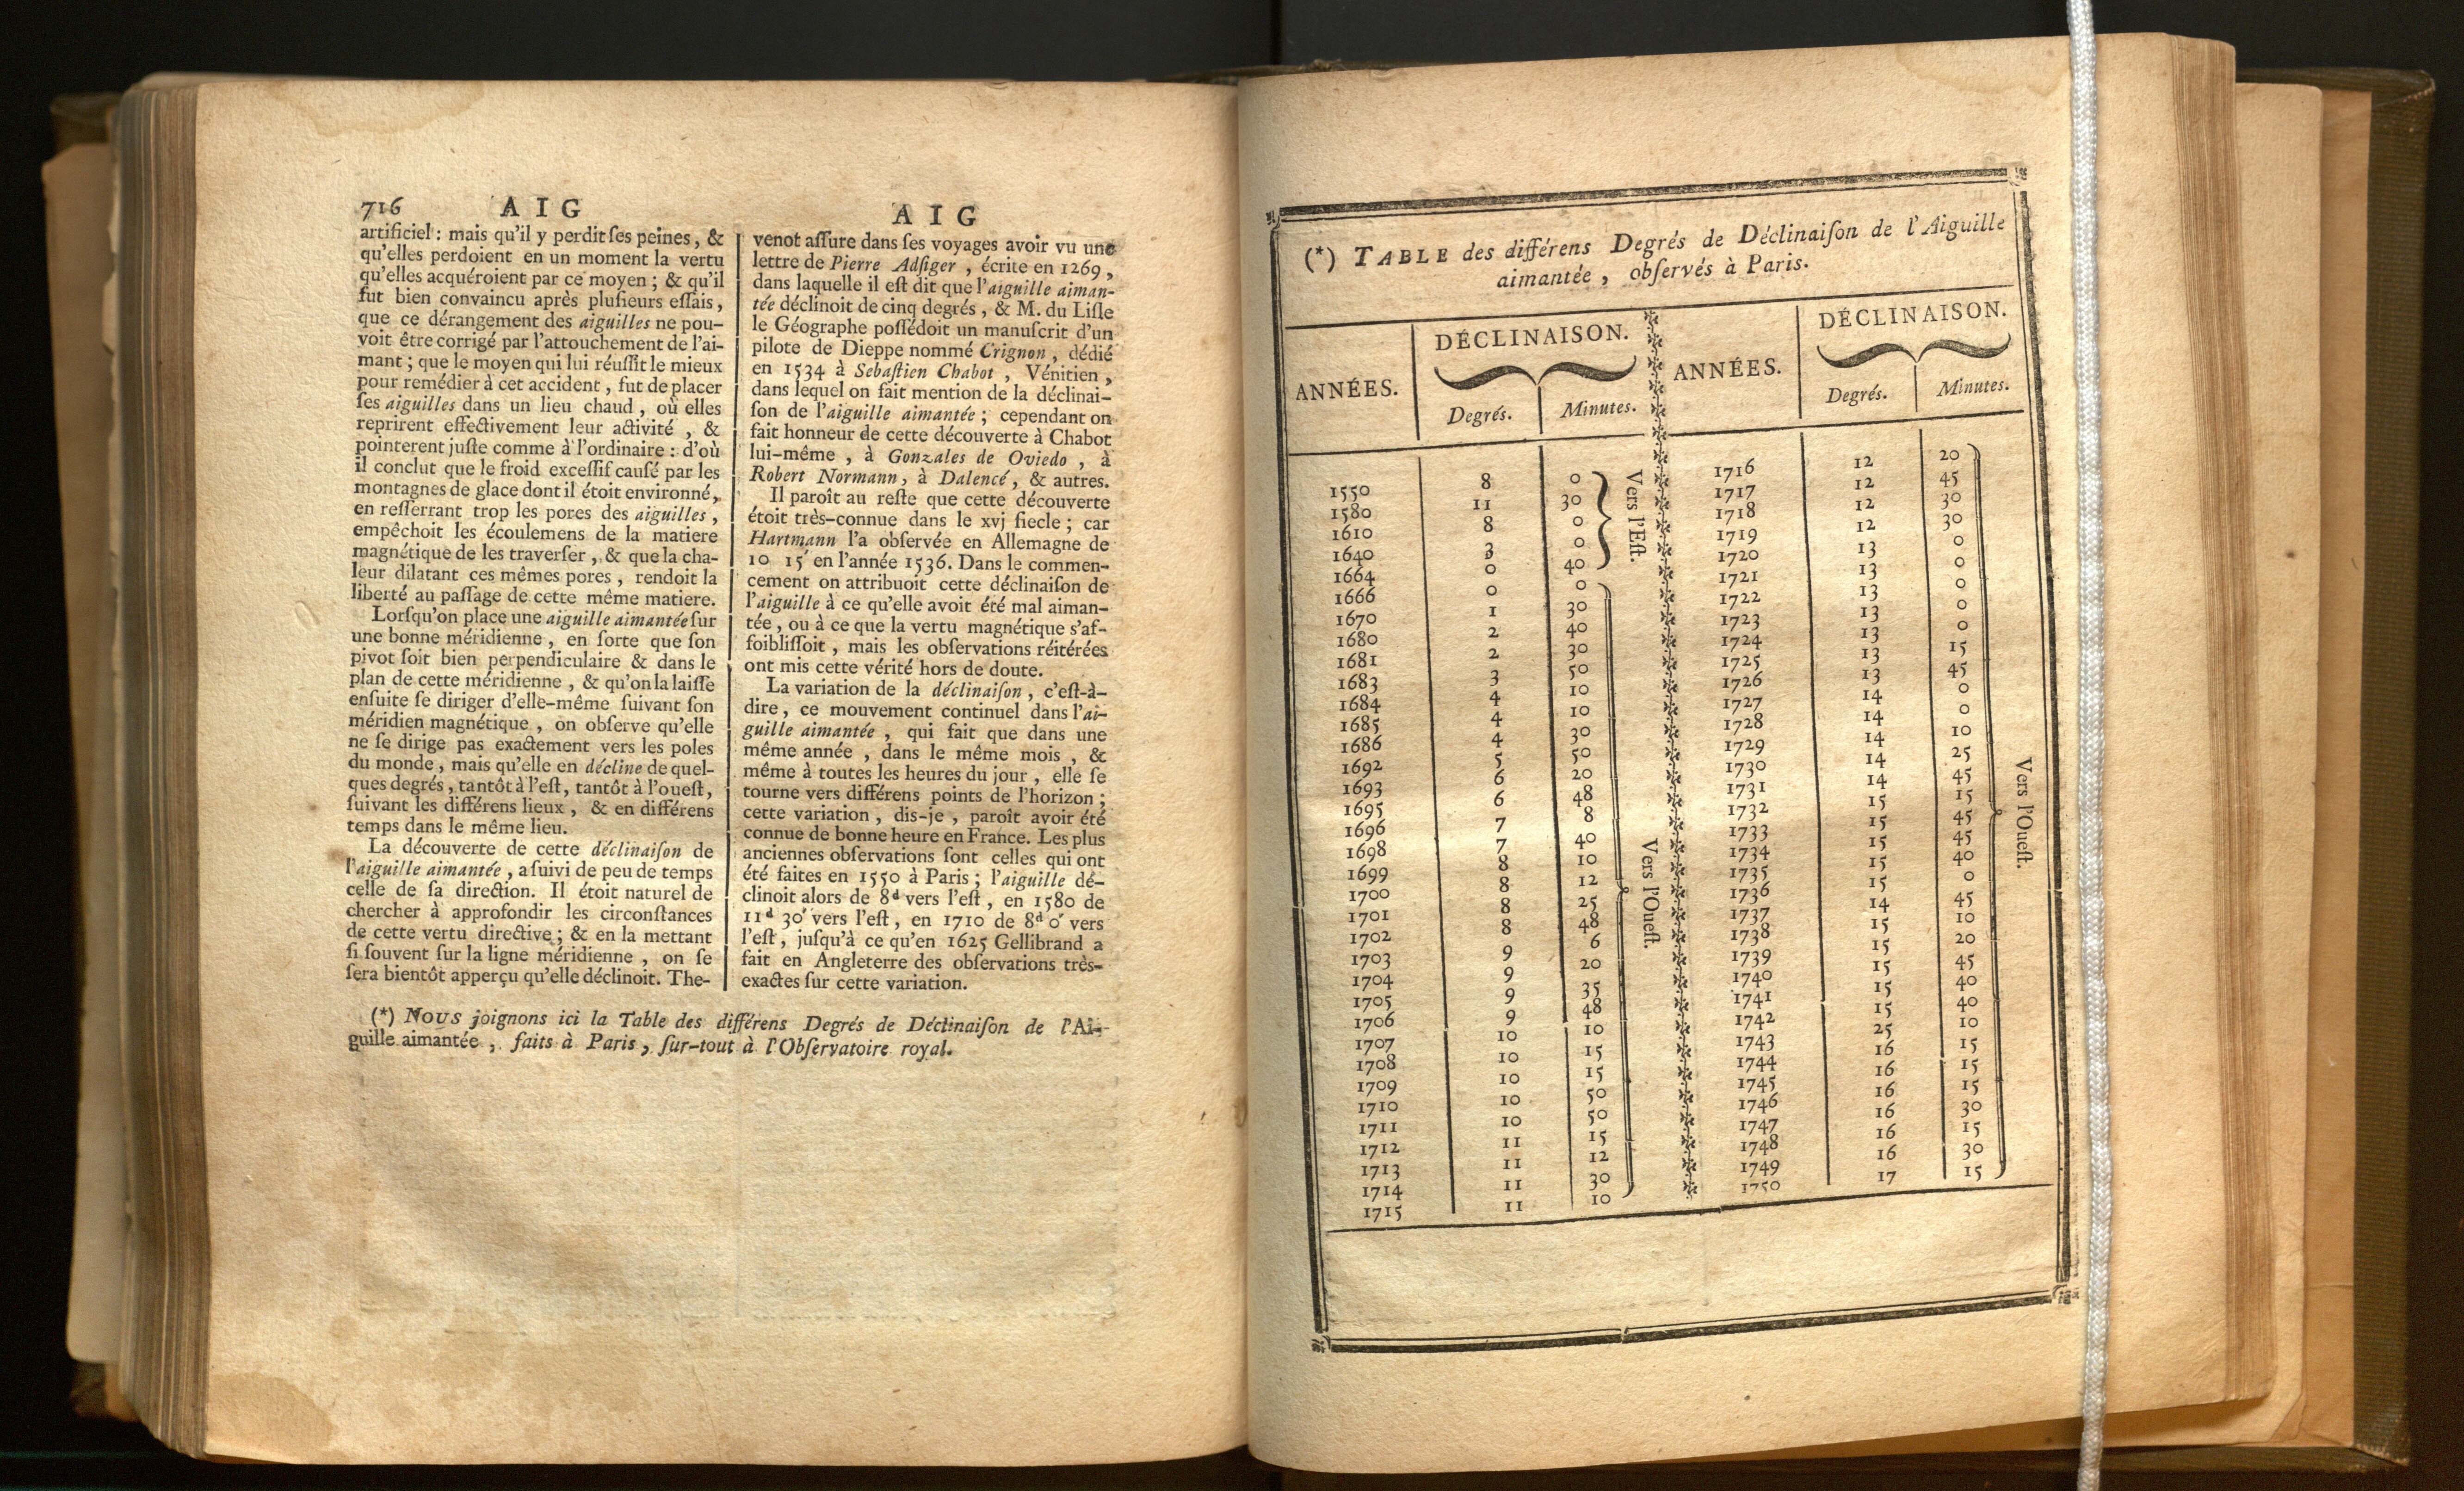 716 AIG
artificiel : mais qu'il y perdit ſes peines, &
qu'elles perdoient en un moment la vertu
qu'elles acquéroient par ce moyen ; & qu'il
fut bien convaincu après pluſieurs eſſais,
que ce dérangement des aiguilles ne pou-
voit être corrigé par l'attouchement de l'ai-
mant ; que le moyen qui lui réuſſit le mieux
pour remédier à cet accident, fut de placer
ſes aiguilles dans un lieu chaud, où elles
reprirent effectivement leur activité, &
pointerent juſte comme à l'ordinaire : d'où
il conclut que le froid exceſſif cauſé par les
montagnes de glace dont il étoit environné,
en reſſerrant trop les pores des aiguilles,
empêchoit les écoulemens de la matiere
magnétique de les traverſer, & que la cha-
leur dilatant ces mêmes pores, rendoit la
liberté au paſſage de cette même matiere.
Lorſqu'on place une aiguille aimantée ſur
une bonne méridienne, en ſorte que ſon
pivot ſoit bien perpendiculaire & dans le
plan de cette méridienne, & qu'on la laiſſe
enſuite ſe diriger d'elle-même ſuivant ſon
méridien magnétique, on obſerve qu'elle
ne ſe dirige pas exactement vers les poles
du monde, mais qu'elle en décline de quel-
ques degrés, tantôt à l'eſt, tantôt à l'oueſt,
ſuivant les différens lieux, & en différens
temps dans le même lieu.
La découverte de cette déclinaiſon de
l'aiguille aimantée, a ſuivi de peu de temps
celle de ſa direction. Il étoit naturel de
chercher à approfondir les circonſtances
de cette vertu directive ; & en la mettant
ſi ſouvent ſur la ligne méridienne, on ſe
ſera bientôt apperçu qu'elle déclinoit. The-
AIG
venot aſſure dans ſes voyages avoir vu une
lettre de Pierre Adſiger, écrite en 1269,
dans laquelle il eſt dit que l'aiguille aiman-
tée déclinoit de cinq degrés, & M. du Liſle
le Géographe poſſédoit un manuſcrit d'un
pilote de Dieppe nommé Crignon, dédié
en 1534 à Sebaſtien Chabot, Vénitien,
dans lequel on fait mention de la déclinai-
ſon de l'aiguille aimantée ; cependant on
fait honneur de cette découverte à Chabot
lui-même, à Gonzales de Oviedo, à
Robert Normann, à Dalencé, & autres.
Il paroît au reſte que cette découverte
étoit très-connue dans le xvj ſiecle ; car
Hartmann l'a obſervée en Allemagne de
10 15′ en l'année 1536. Dans le commen-
cement on attribuoit cette déclinaiſon de
l'aiguille à ce qu'elle avoit été mal aiman-
tée, ou à ce que la vertu magnétique s'af-
foibliſſoit, mais les obſervations réitérées
ont mis cette vérité hors de doute.
La variation de la déclinaiſon, c'eſt-à-
dire, ce mouvement continuel dans l'ai-
guille aimantée, qui fait que dans une
même année, dans le même mois, &
même à toutes les heures du jour, elle ſe
tourne vers différens points de l'horizon ;
cette variation, dis-je, paroît avoir été
connue de bonne heure en France. Les plus
anciennes obſervations ſont celles qui ont
été faites en 1550 à Paris ; l'aiguille dé-
clinoit alors de 8d vers l'eſt, en 1580 de
11d 30′ vers l'eſt, en 1710 de 8d 0′ vers
l'eſt, juſqu'à ce qu'en 1625 Gellibrand a
fait en Angleterre des obſervations très-
exactes ſur cette variation.
(*) Nous joignons ici la Table des différens Degrés de Déclinaiſon de l'Ai-
guille aimantée, faits à Paris, ſur-tout à l'Obſervatoire royal.
(*) TABLE des différens Degrés de Déclinaiſon de l'Aiguille
aimantée, obſervés à Paris.
ANNÉES. DÉCLINAISON.
Degrés. Minutes.
1550 8 0
1580 11 30
1610 8 0
1640 3 0
1664 0 40
Vers l'Eſt.
1666 0 0
1670 1 30
1680 2 40
1681 2 30
1683 3 50
1684 4 10
1685 4 10
1686 4 30
1692 5 50
1693 6 20
1695 6 48
1696 7 8
1698 7 40
1699 8 10
1700 8 12
1701 8 25
1702 8 48
1703 9 6
1704 9 20
1705 9 35
1706 9 48
1707 10 10
1708 10 15
1709 10 15
1710 10 50
1711 10 50
1712 11 15
1713 11 12
1714 11 30
1715 11 10
Vers l'Oueſt.
ANNÉES. DÉCLINAISON.
Degrés. Minutes.
1716 12 20
1717 12 45
1718 12 30
1719 12 30
1720 13 0
1721 13 0
1722 13 0
1723 13 0
1724 13 0
1725 13 15
1726 13 45
1727 14 0
1728 14 0
1729 14 10
1730 14 25
1731 14 45
1732 15 15
1733 15 45
1734 15 45
1735 15 40
1736 15 0
1737 14 45
1738 15 10
1739 15 20
1740 15 45
1741 15 40
1742 15 40
1743 25 10
1744 16 15
1745 16 15
1746 16 15
1747 16 30
1748 16 15
1749 16 30
1750 17 15
Vers l'Oueſt.